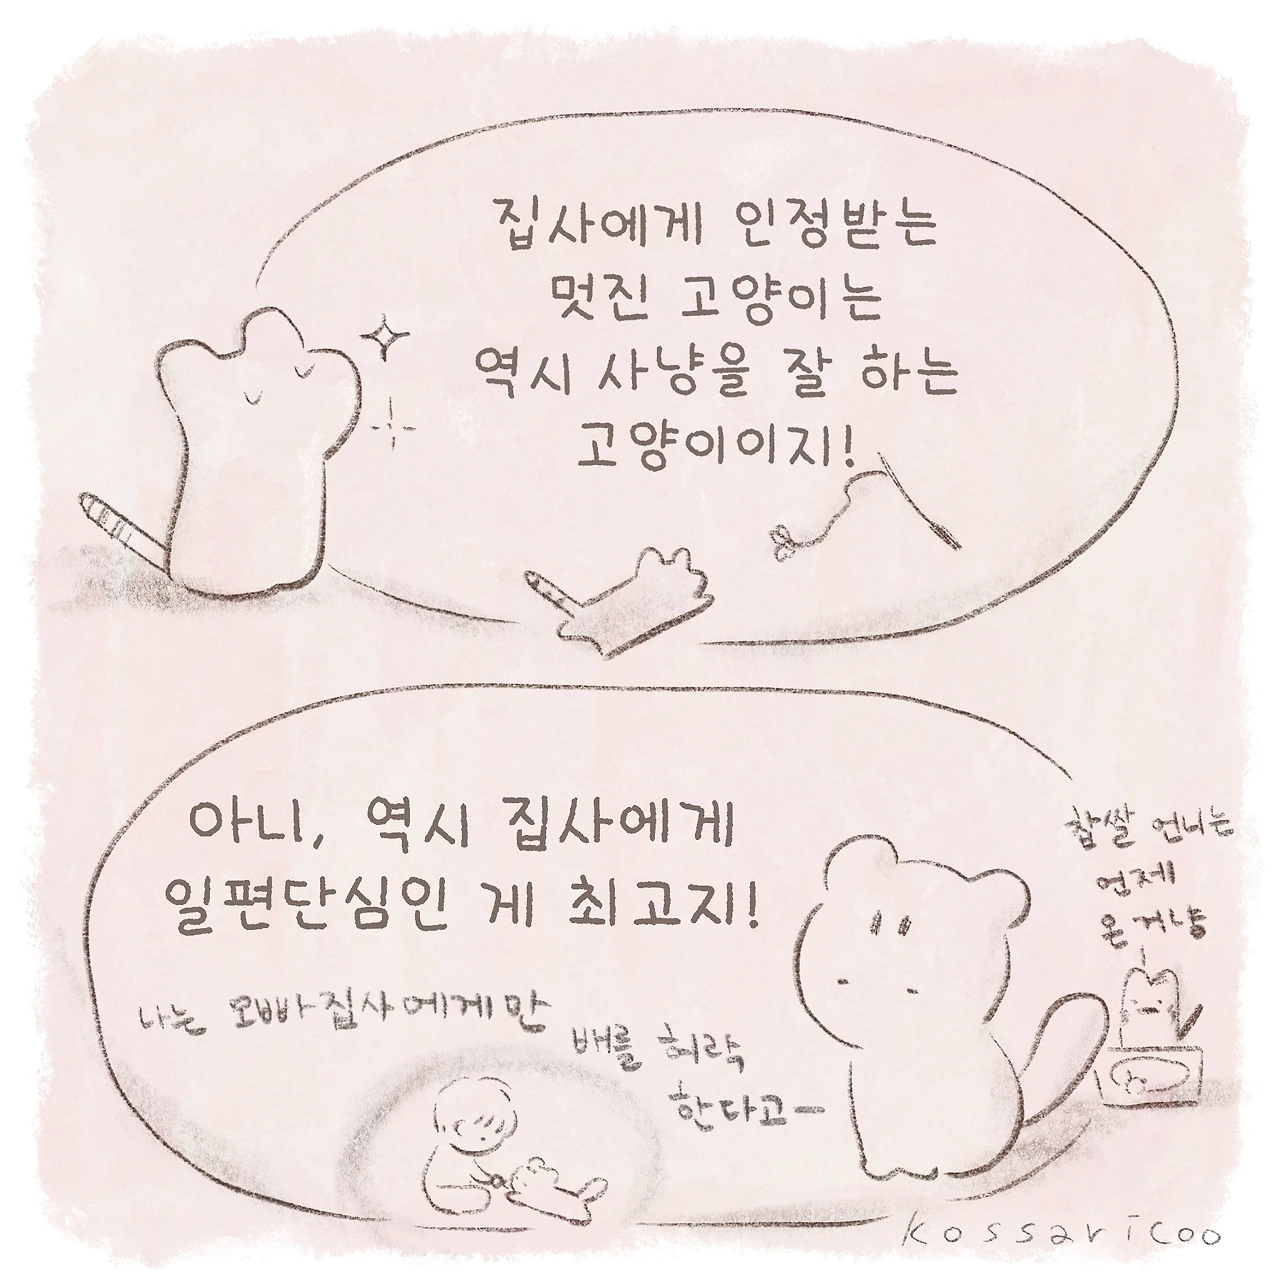 집사에게 인정받는
멋진 고양이는
역시 사냥을 잘 하는
고양이이지!
아니, 역시 집사에게
일편단심인 게 최고지!
나는 오빠집사에게만
배를 허락
한다고ー
찹쌀 언니는
언제
온거냥
kossaricoo